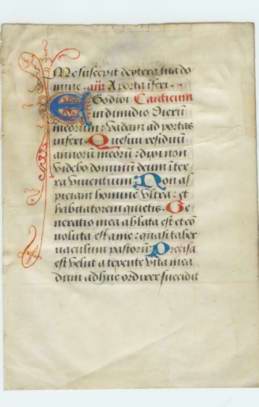 Me suscepit dextera tua do
mine. an̄. A porta inferi.
Ego dixi Canticum
in dimidio dierū
meorum: vadam ad portas
inferi. Quesivi residuū
annorū meorū: dixi non
videbo dominū deum ī ter
ra viventium. Non as
piciam hominem ultra: et
habitatorem quietis. Ge
neratio mea ablata est et cō
voluta est a me: quasi taber
naculum pastorū. Precisa
est velut a texente vita mea
dum adhuc ordirer succidit